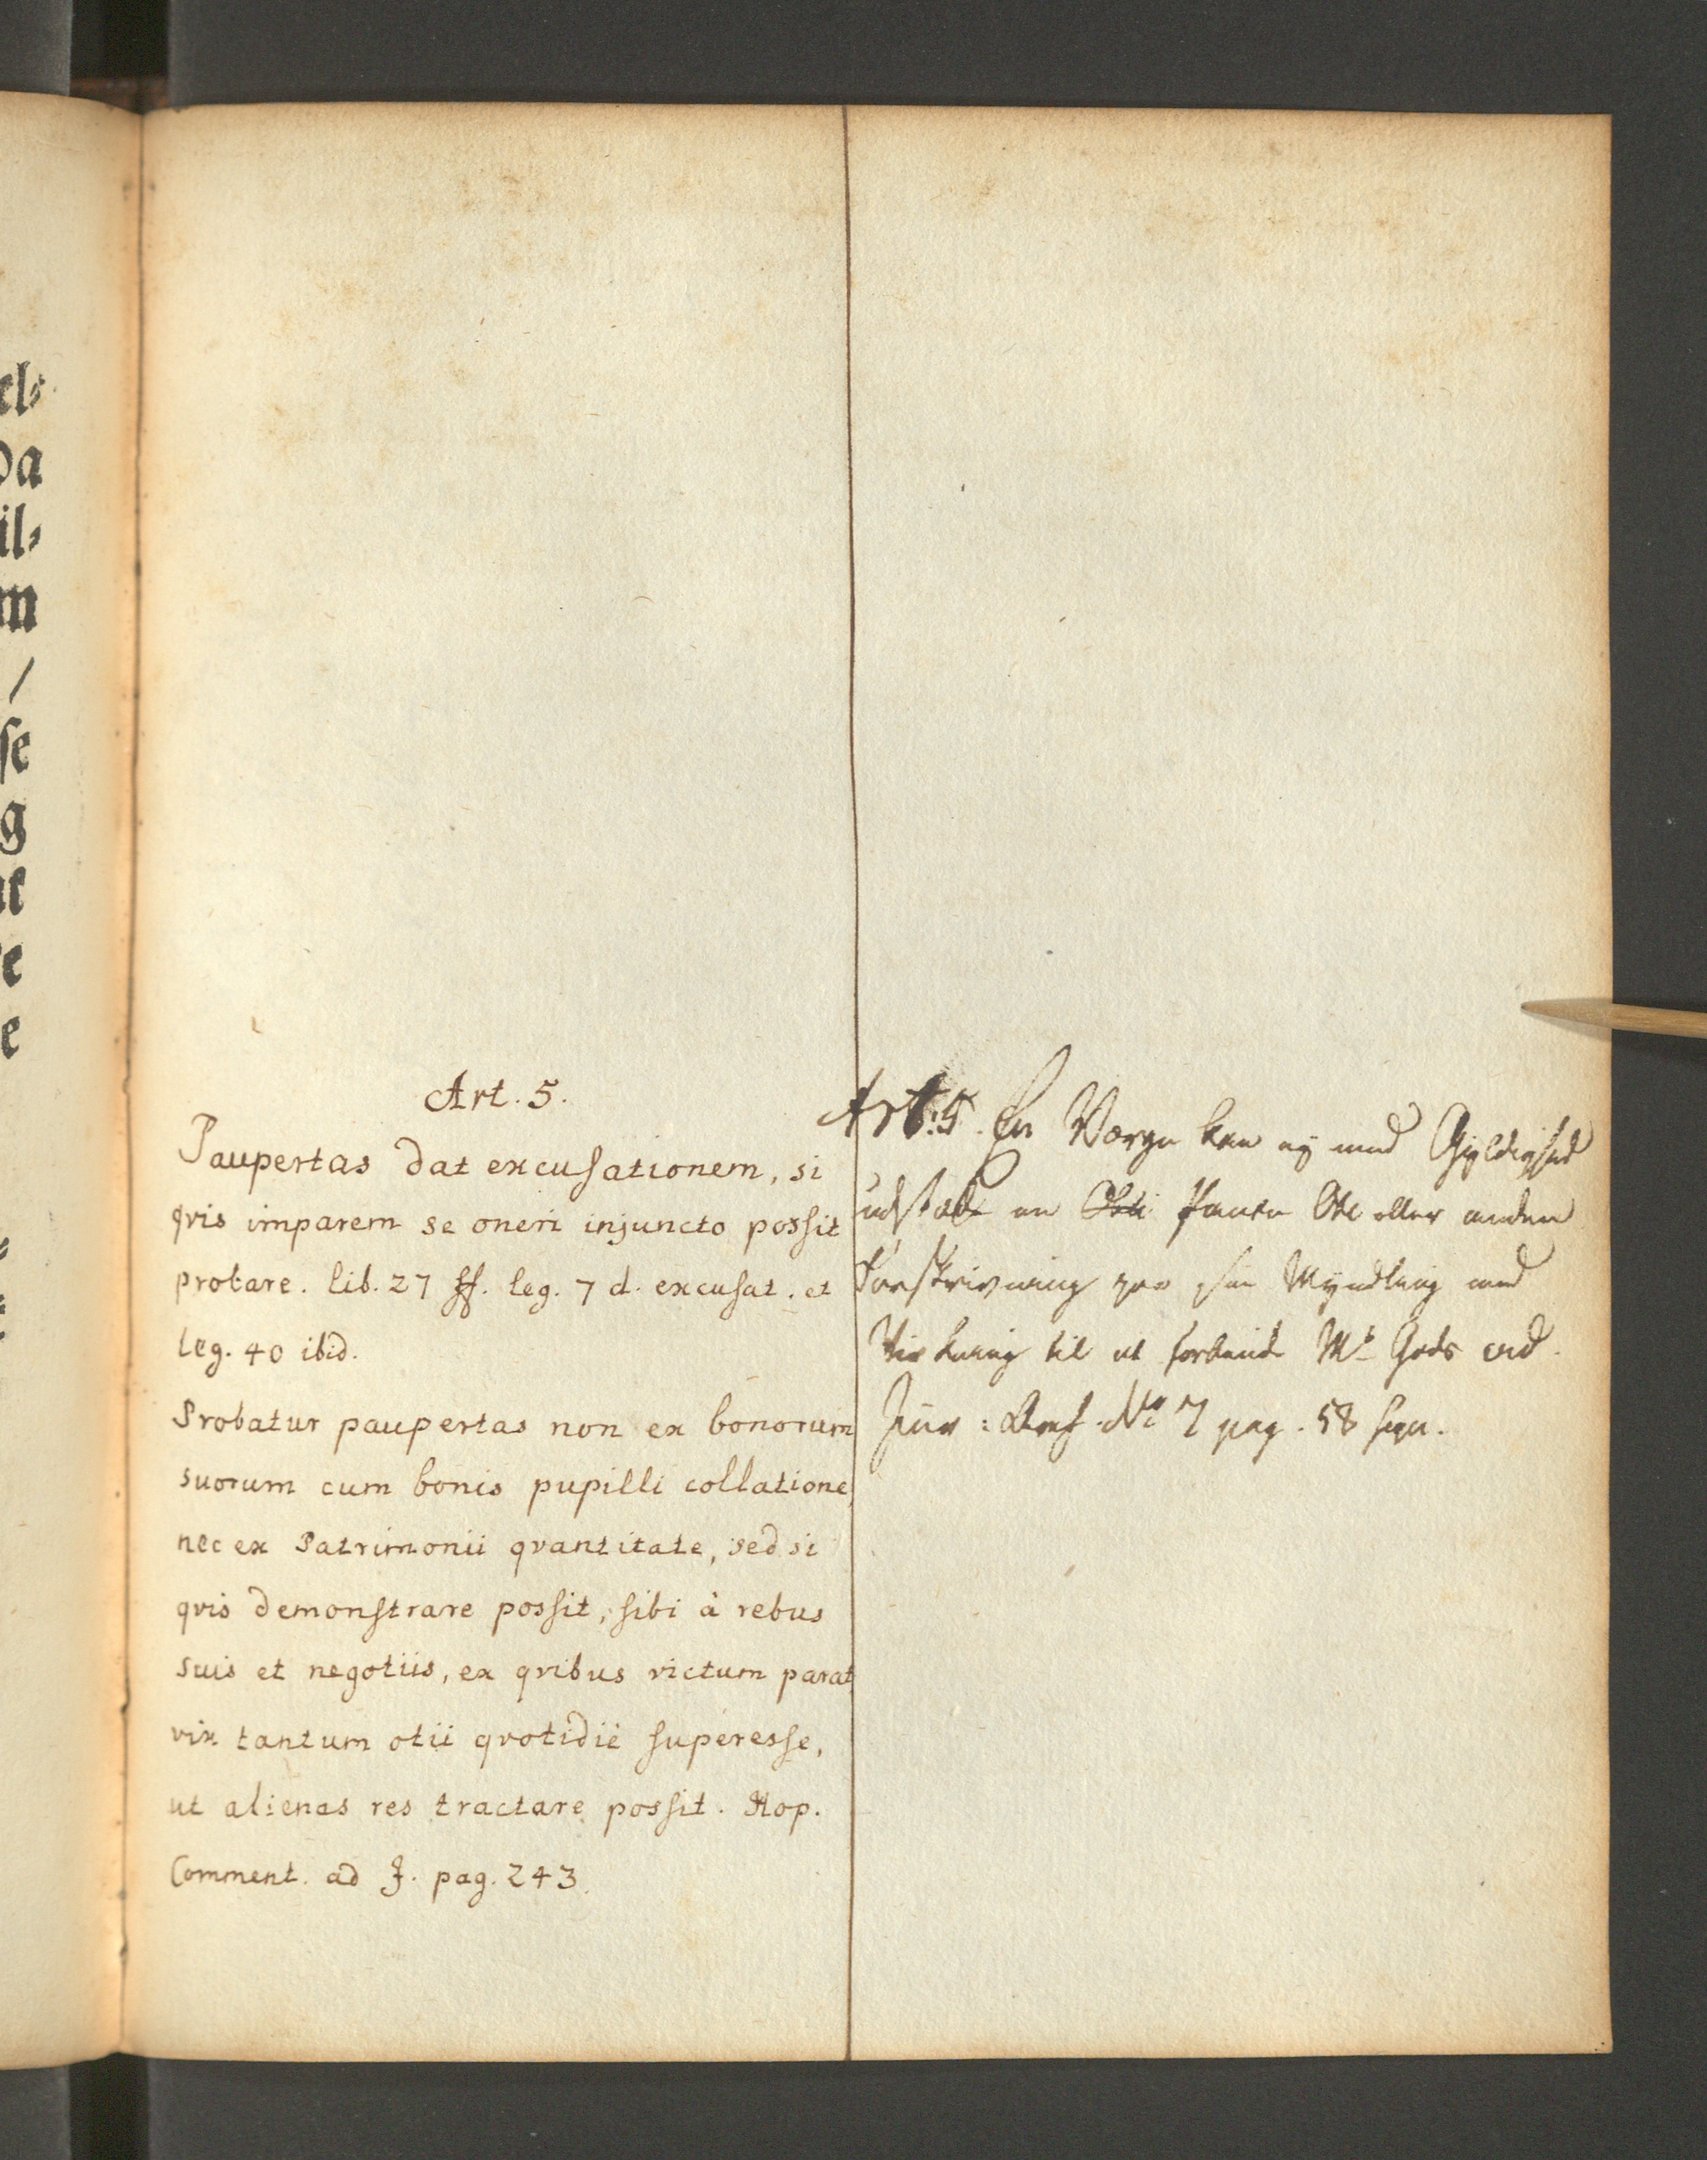 el⸗
Da
il⸗
m
/
ſe
g
at
re
e
Art. 5.
Paupertas dat excuſationem, si
qvis imparem se oneri injuncto posſit
probare. lib. 27 ff. leg. 7 d. excuſat. et
leg. 40 ibid.
Probatur paupertas non ex bonorum
suorum cum bonis pupilli collatione,
nec ex Patrimonii qvantitate, sed si
qvis demonſtrare posſit, ſibi à rebus
suis et negotiis, ex qvibus victum parat
vix tantum otii qvotidiè ſuperesſe,
ut alienas res tractare posſit. Hop.
Comment. ad J. pag. 243.
Art: 5. En Værge kan ej med Gyldighed
udstæde en Pante Obl eller anden
Forskrivning for sin Myndling med
Virkning til at forbinde Mb Gods vid
Jur: Arch. No 7 pag. 58 sqq.